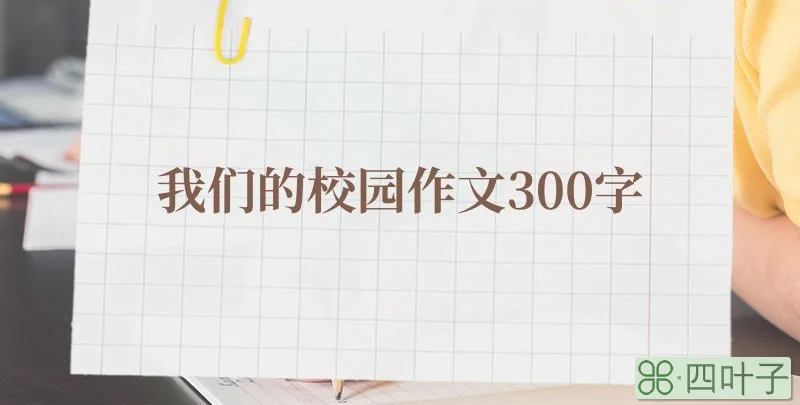 我们的校园作文300字
四叶子